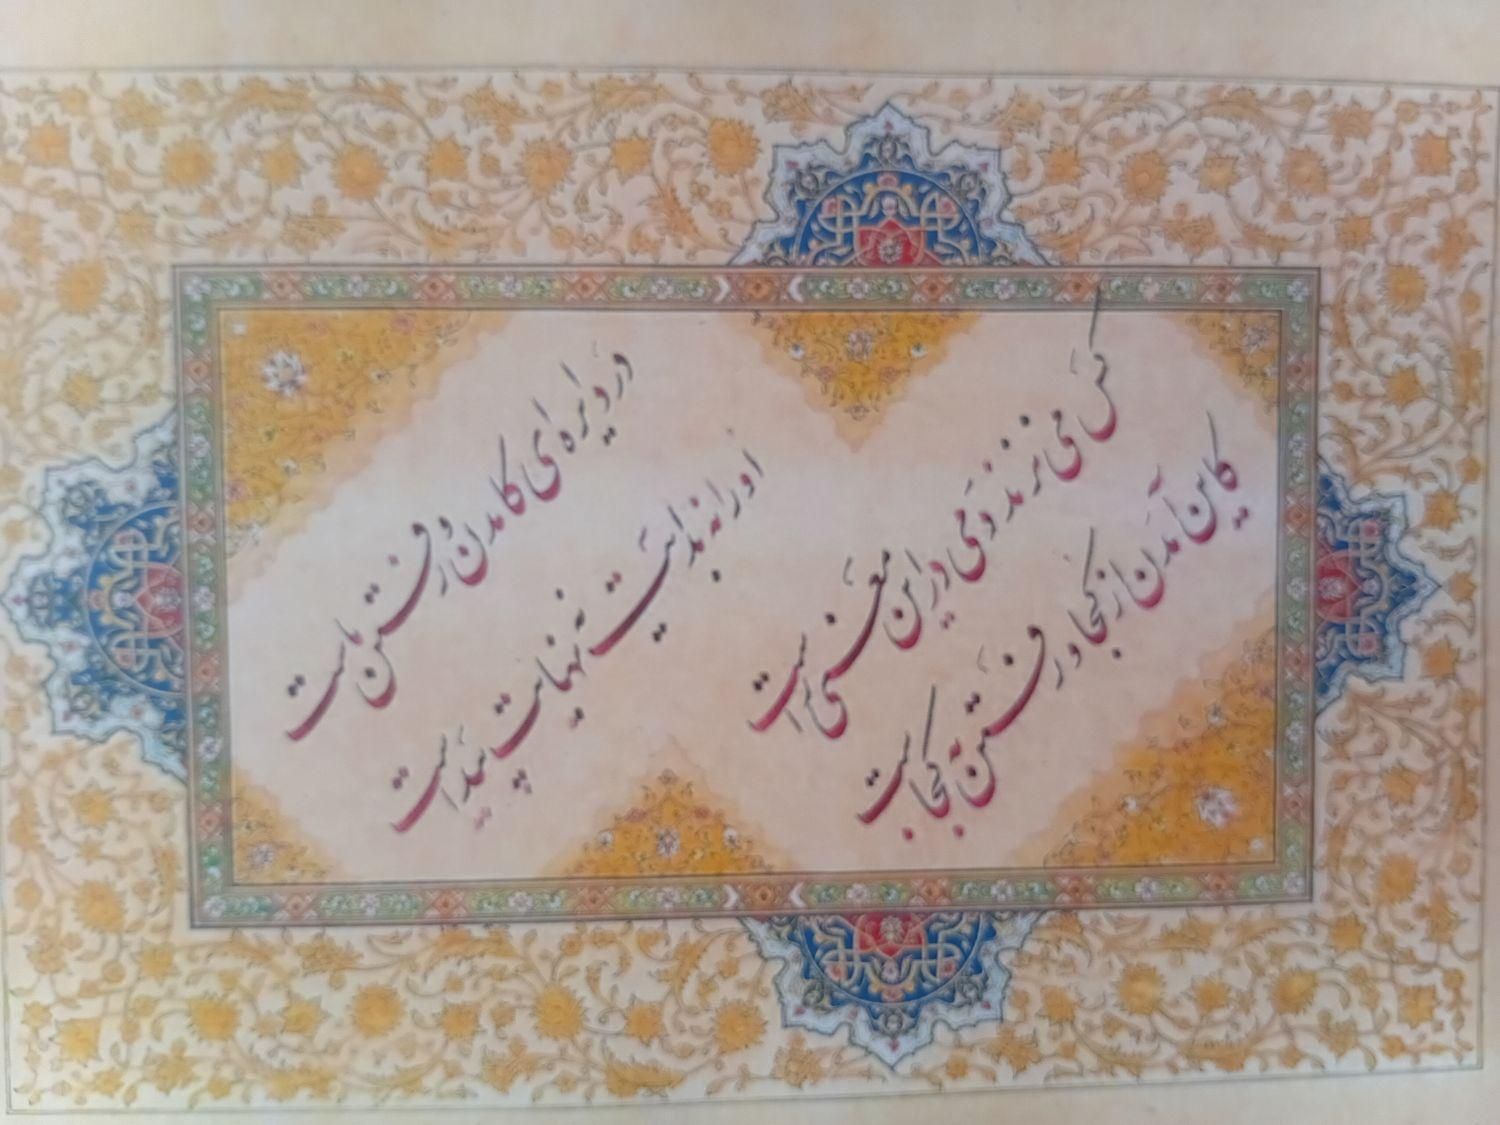 در دایره ای کامدن و رفتن ماست
او را نه بدایت نه نهایت پیداست
کس می نزند دمی در این معنی راست
کاین آمدن از کجا و رفتن به کجاست